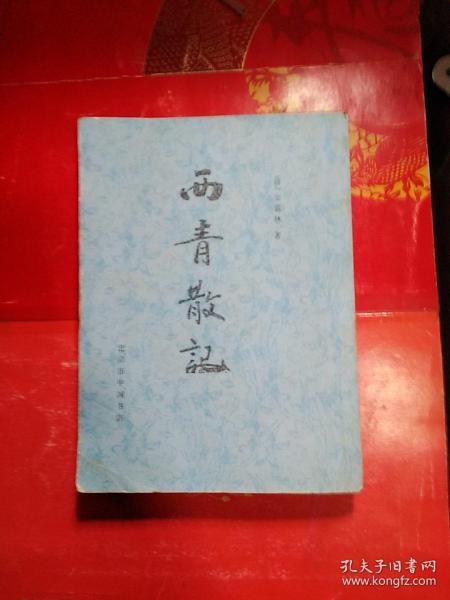 西青散记
[清]史震林 著
北京市中国书店
孔夫子旧书网
www.kongfz.com